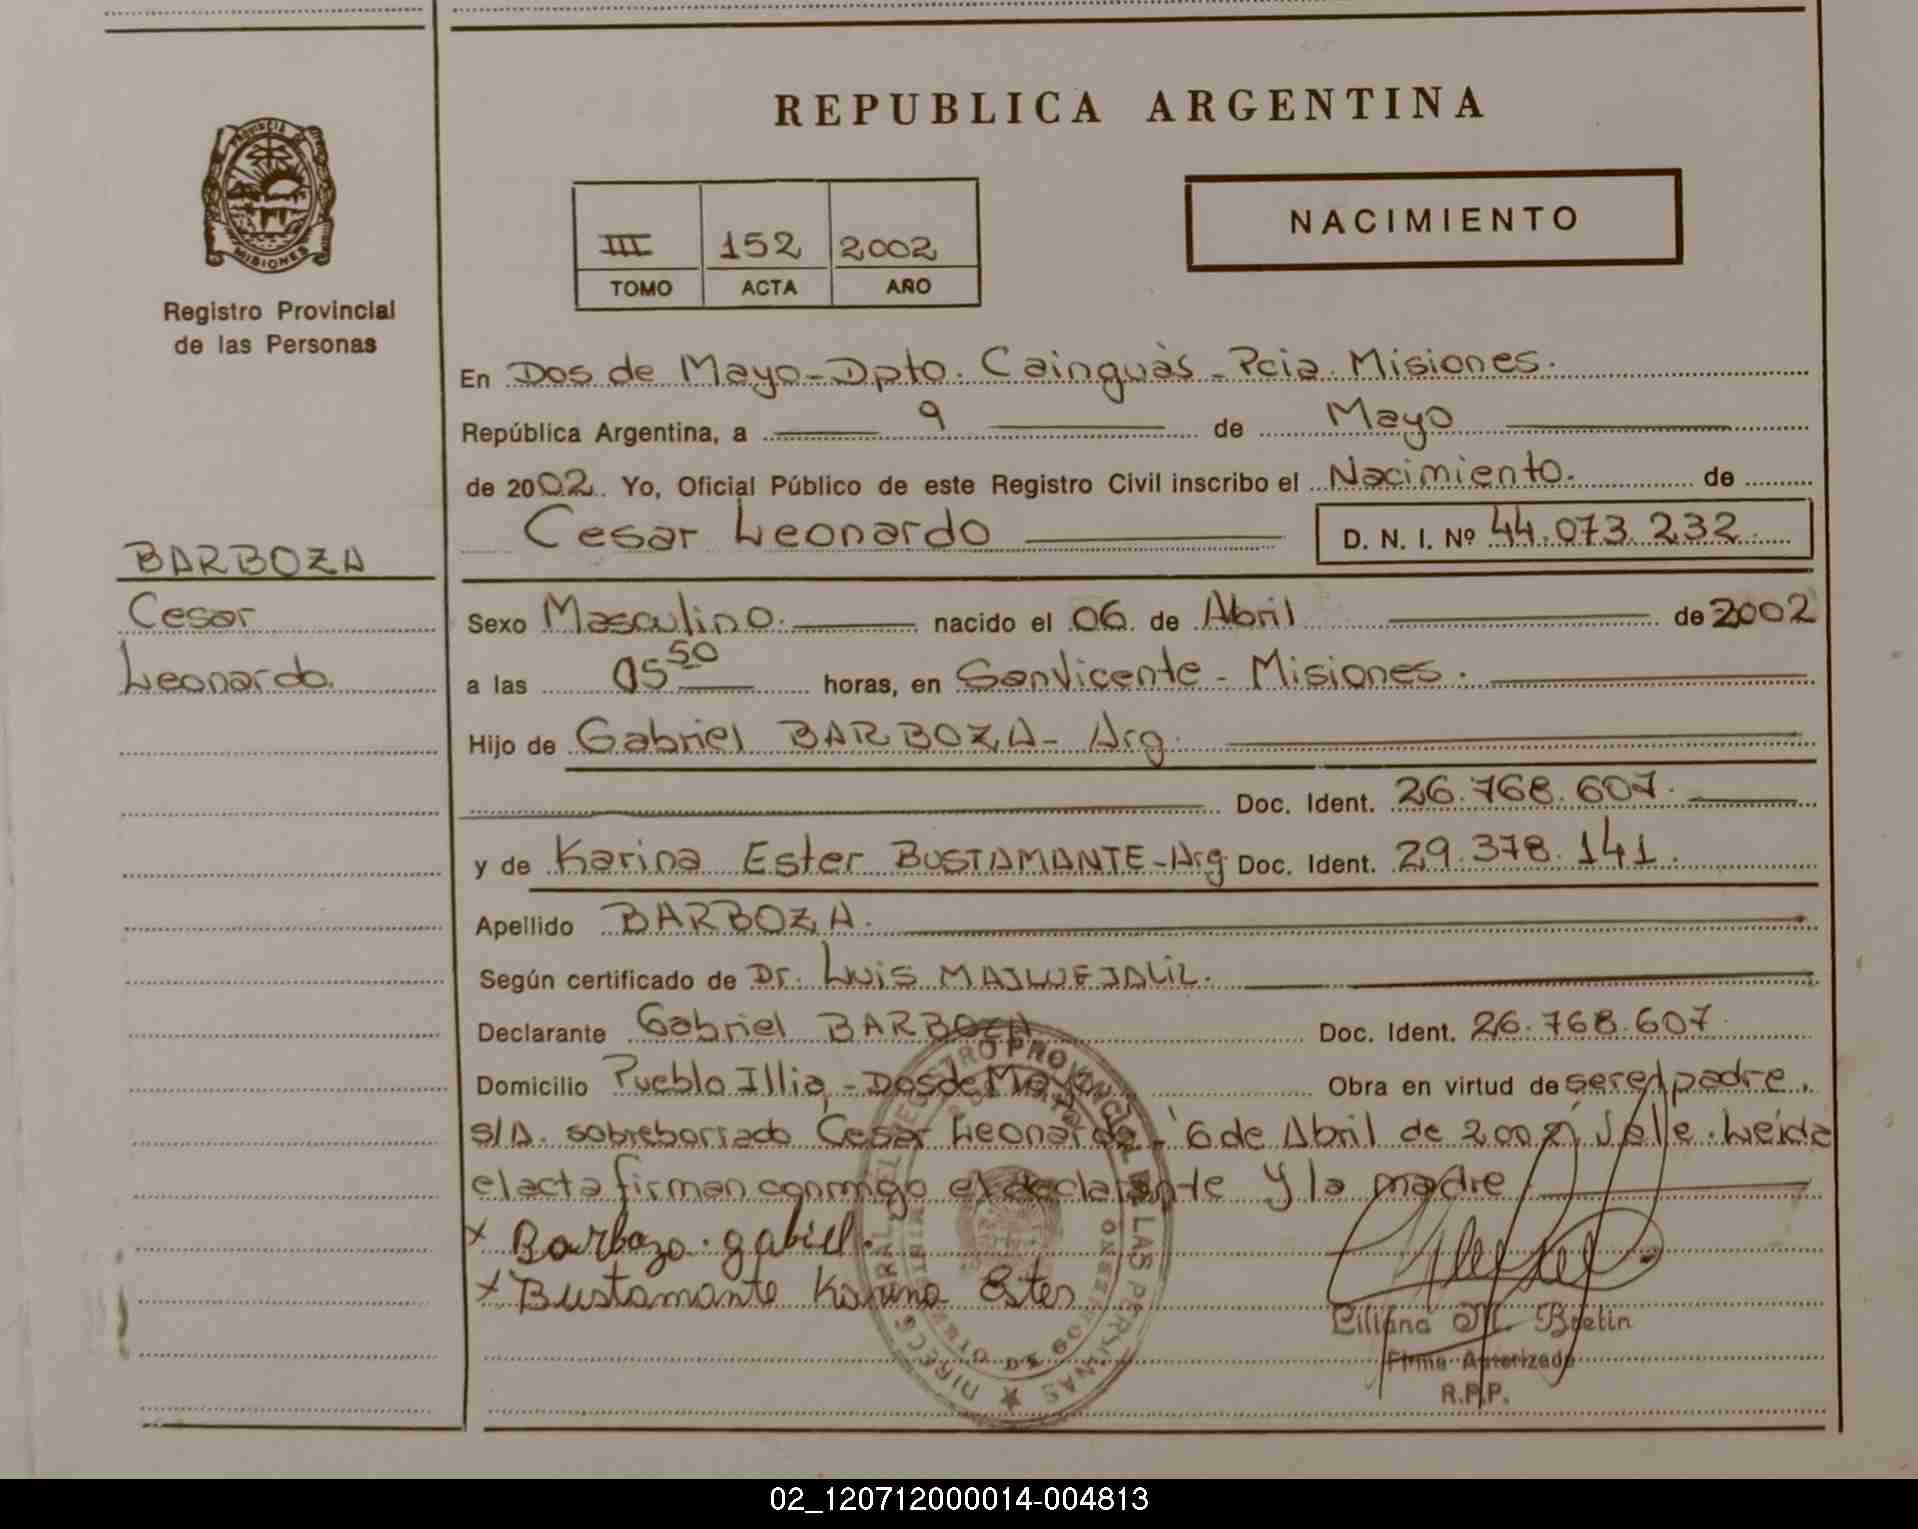 REPUBLICA ARGENTINA
PROVINCIA DE
MISIONES
Registro Provincial
de las Personas
III 152 2002
TOMO ACTA AÑO
NACIMIENTO
En Dos de Mayo - Dpto. Cainguàs - Pcia. Misiones.
República Argentina, a 9 de Mayo
de 2002. Yo, Oficial Público de este Registro Civil inscribo el Nacimiento. de
Cesar Leonardo D. N. I. Nº 44.073.232.
BARBOZA
Cesar
Leonardo.
Sexo Masculino. nacido el 06 de Abril de 2002
a las 05 50 horas, en San Vicente - Misiones.
Hijo de Gabriel BARBOZA - Arg.
Doc. Ident. 26.768.607.
y de Karina Ester BUSTAMANTE - Arg. Doc. Ident. 29.378.141.
Apellido BARBOZA.
Según certificado de Dr. Luis
Declarante Gabriel BARBOZA Doc. Ident. 26.768.607.
Domicilio Pueblo Illia, - Dos de Mayo. Obra en virtud de ser el padre.
s/A. sobreborrado Cesar Leonardo - 6 de Abril de 2002, Vale. Leída
el acta firman conmigo el declarante y la madre.
x Barbozo. gabiel.
x Bustamante Karina Ester
DIRECC GRAL DEL REGISTRO PROVINCIAL DE LAS PERSONAS
DOS DE MAYO
Liliana M. Bretin
Firma Autorizada
R.P.P.
02_120712000014-004813